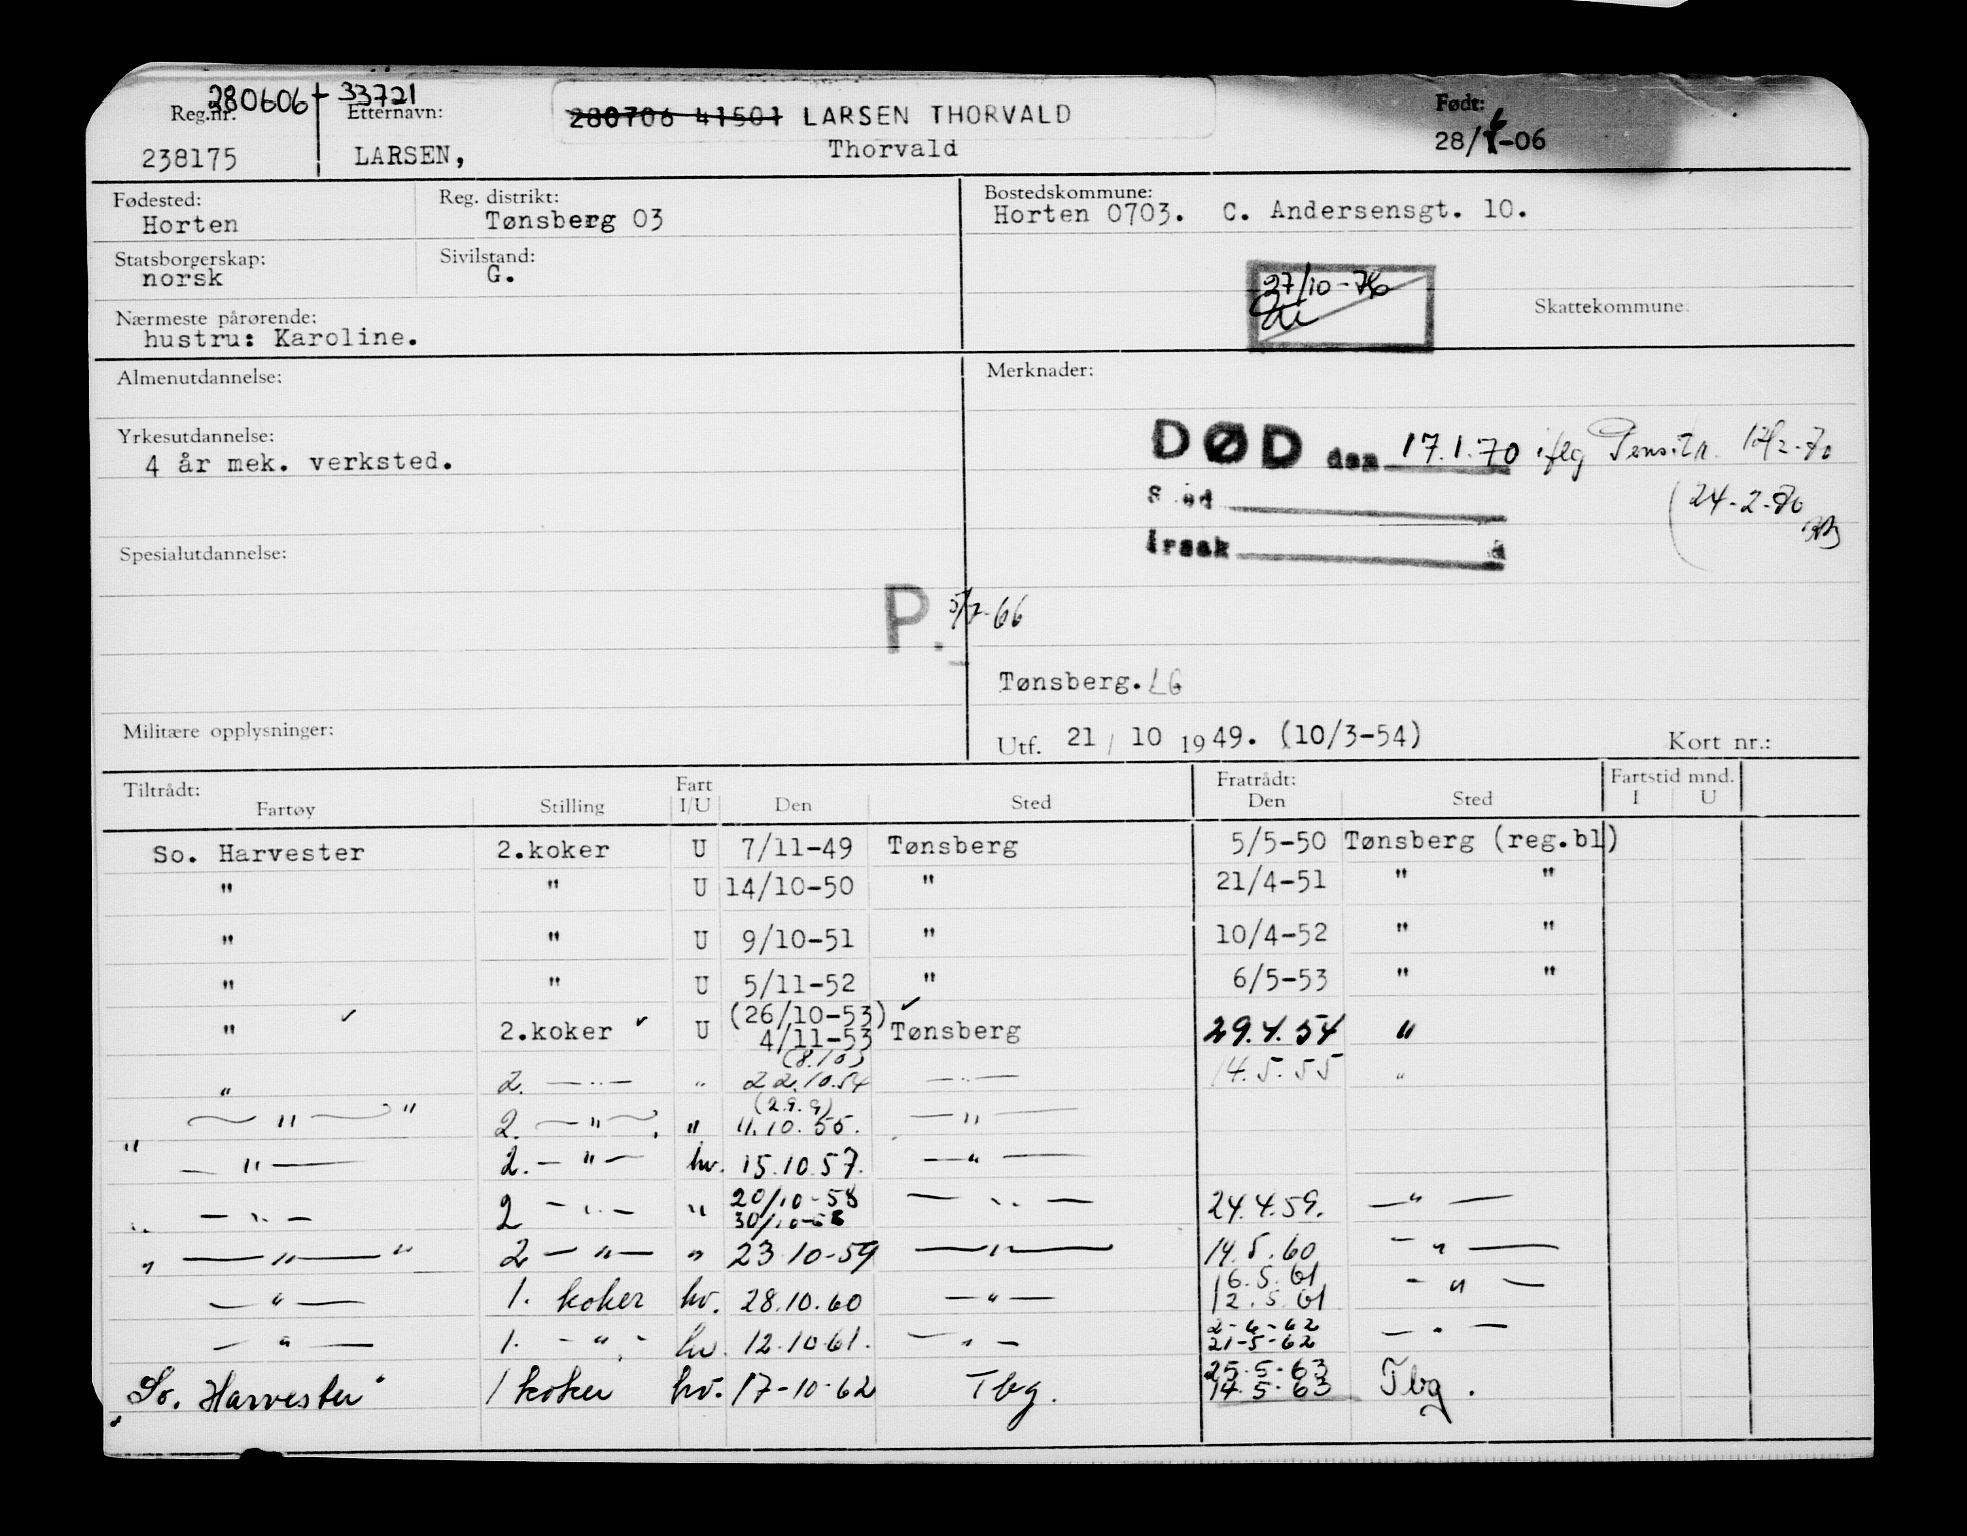 280606 33721
Reg.nr. Etternavn: 280706 41501 LARSEN THORVALD Født:
238175 LARSEN, Thorvald 28/6-06
Fødested: Reg. distrikt: Bostedskommune:
Horten Tønsberg 03 Horten 0703. C. Andersensgt. 10.
Statsborgerskap: Sivilstand:
norsk G.
27/10-76
Skattekommune:
Nærmeste pårørende:
hustru: Karoline.
Almenutdannelse: Merknader:
Yrkesutdannelse:
4 år mek. verksted.
DØD den 17.1.70 iflg
Sted 24-2-80
Årsak
Spesialutdannelse:
P. 5/7-66
Tønsberg. LG
Militære opplysninger:
Utf. 21 / 10 1949. (10/3-54) Kort nr.:
Tiltrådt: Fart Fratrådt: Fartstid mnd.
Fartøy Stilling I/U Den Sted Den Sted I U
So. Harvester 2.koker U 7/11-49 Tønsberg 5/5-50 Tønsberg (reg.bl)
" " U 14/10-50 " 21/4-51 " "
" " U 9/10-51 " 10/4-52 " "
" " U 5/11-52 " 6/5-53 " "
(26/10-53)
" 2.koker U 4/11-53 Tønsberg 29.4.54 "
(8.10)
" 2. —"— " 22.10.54 —"— 14.5.55 "
(29.9)
" —"— " 2. —"— " 11.10.55. —"—
" —"— 2. —"— hv. 15.10.57. —"—
20/10-58
" —"— 2 —"— " 30/10-58 —"— 24.4.59. —"—
" —"— " 2 —"— " 23.10-59 —"— 14.5.60 —"—
16.5.61
—"— 1. koker hv. 28.10.60 —"— 12.5.61 —"—
2-6-62
—"— 1. —"— hv. 12.10.61. —"— 21-5-62 —"—
25.5-63
So. Harvester 1 koker hv. 17-10-62 Tbg. 14.5-63 Tbg.